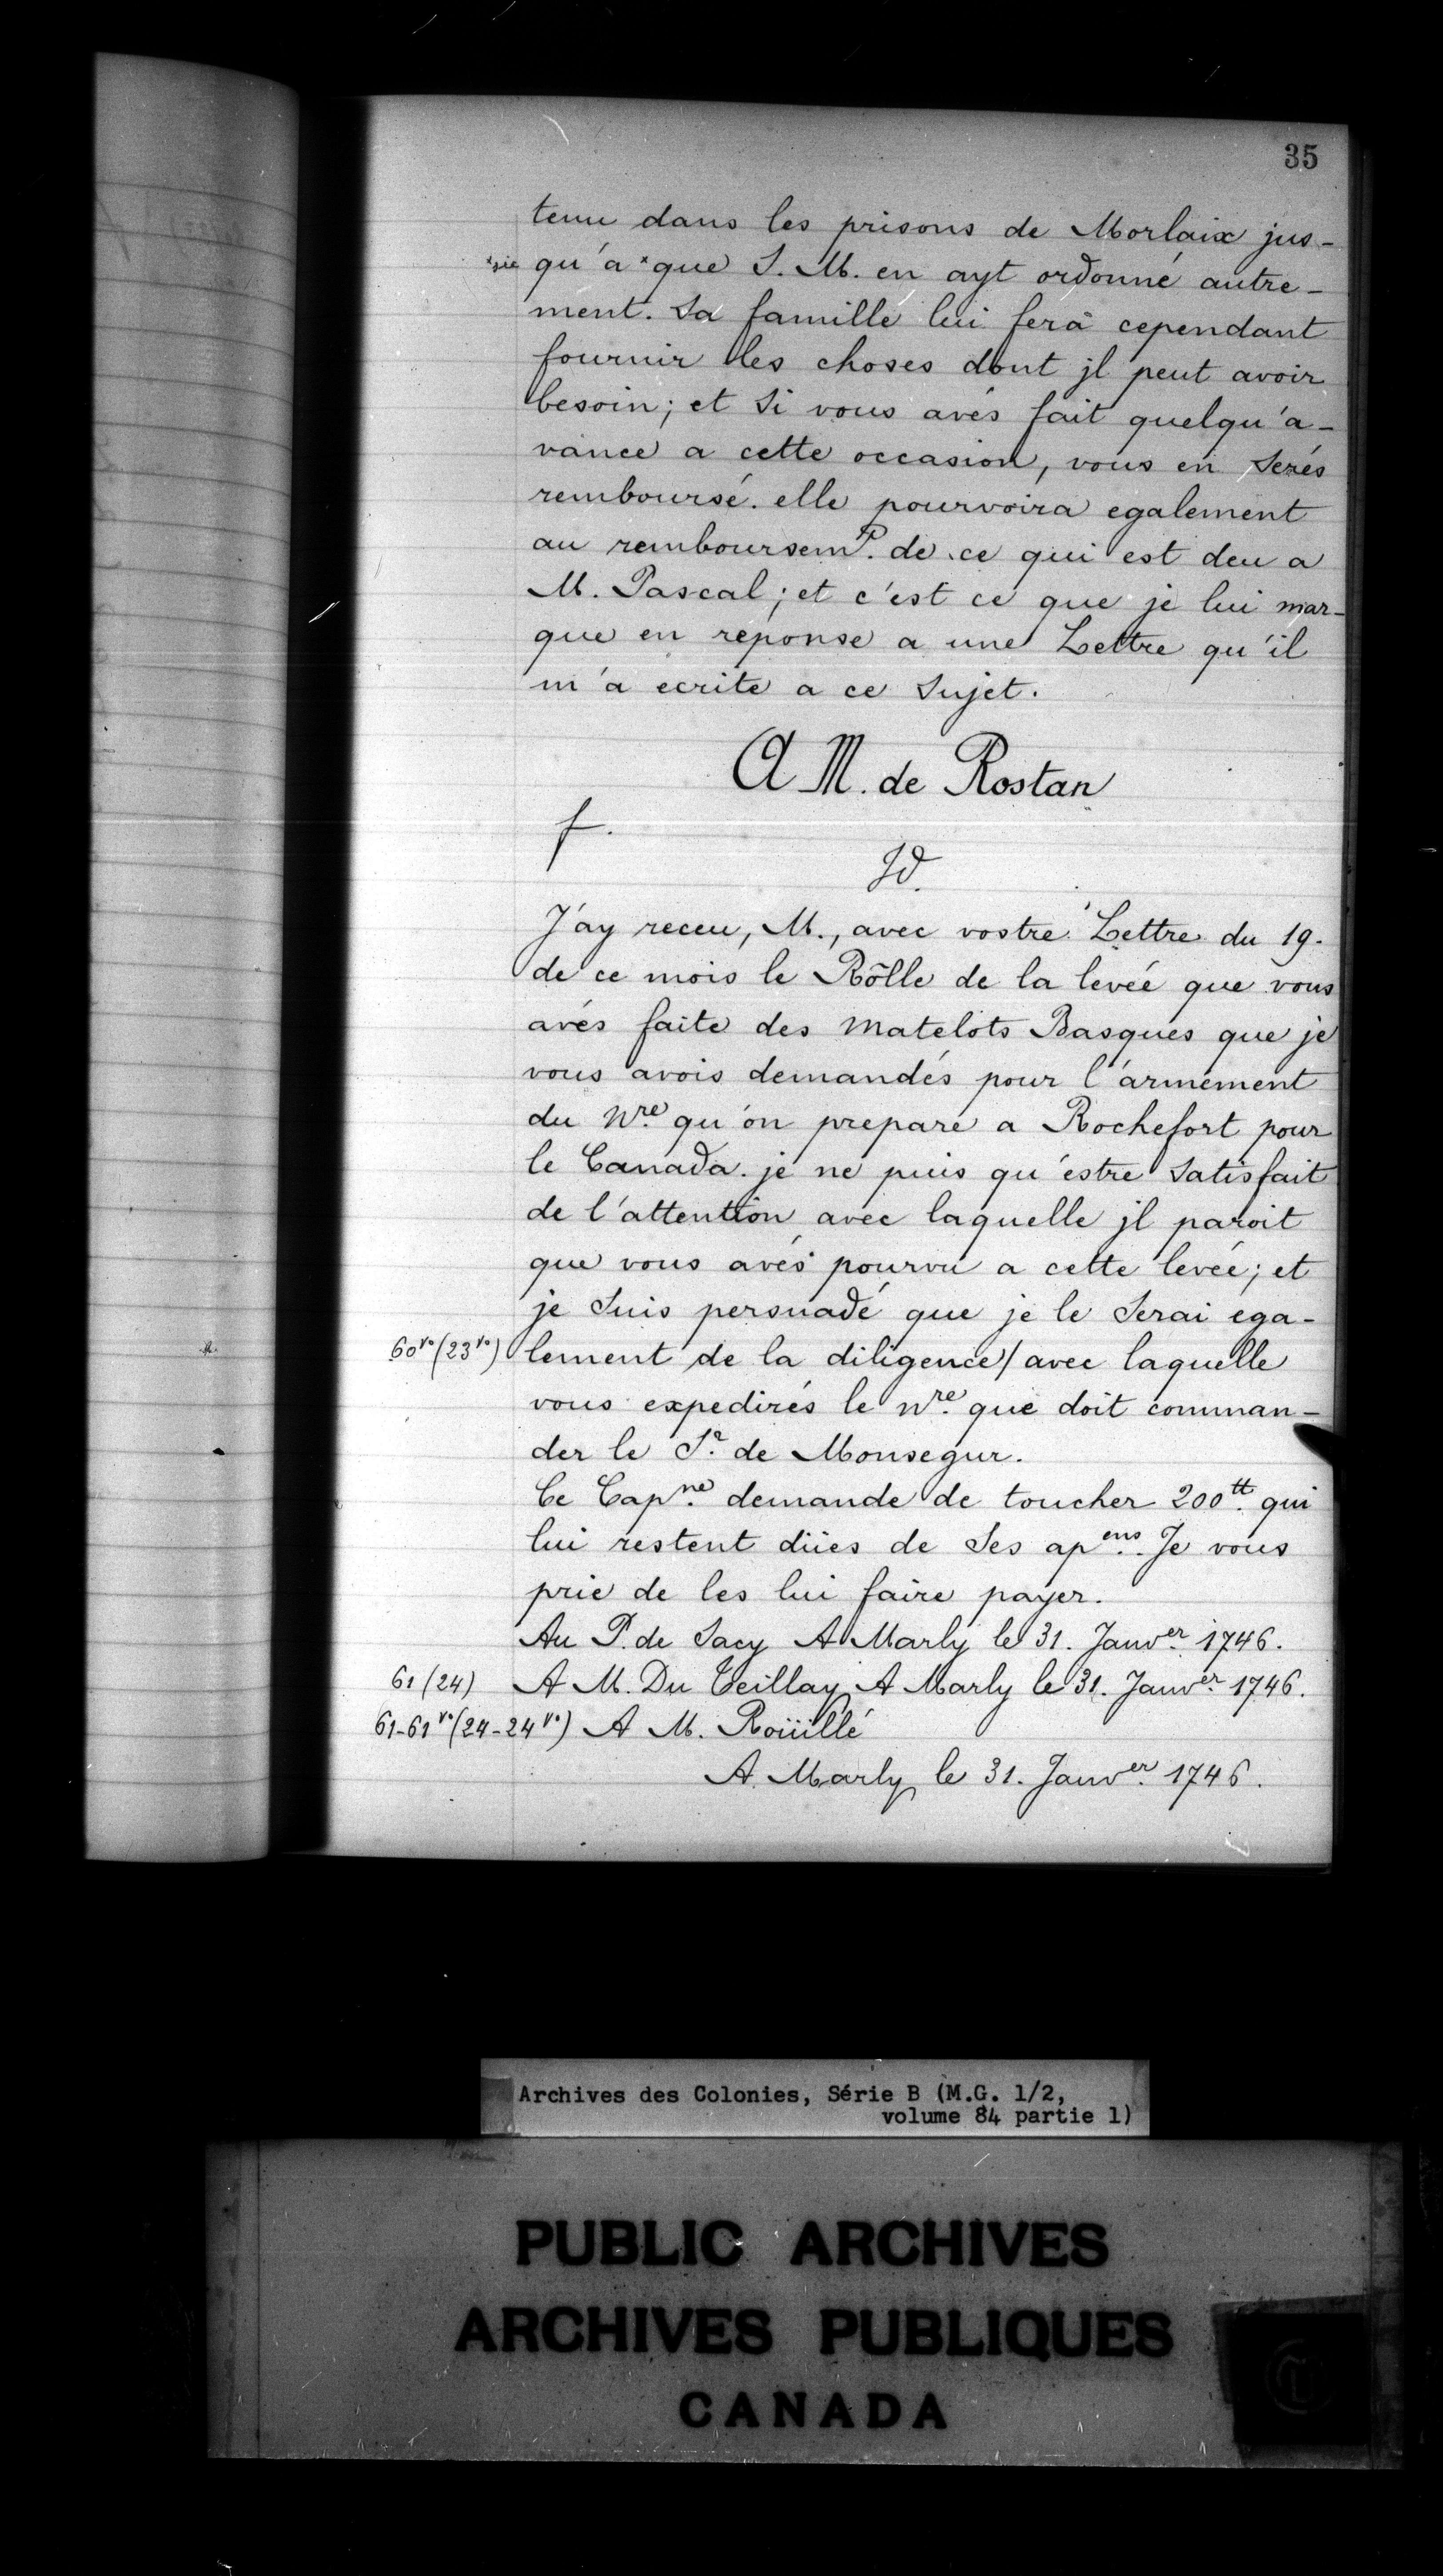 35
tenu dans les prisons de Morlaix jus-
*sic qu'a *que S. M. en ayt ordonné autre-
ment. Sa famille lui fera cependant
fournir les choses dont jl peut avoir
besoin; et Si vous avés fait quelqu'a-
vance a cette occasion, vous en Serés
remboursé. elle pourvoira egalement
au remboursemt. de ce qui est deu a
M. Pascal; et c'est ce que je lui mar-
que en reponse a une Lettre qu'il
m'a ecrite a ce Sujet.
A M. de Rostan
f.
Jd.
J'ay receu, M., avec vostre Lettre du 19.
de ce mois le Rôlle de la levée que vous
avés faite des Matelots Basques que je
vous avois demandés pour l'armement
du Nre. qu'on prepare a Rochefort pour
le Canada. je ne puis qu'estre Satisfait
de l'attention avec laquelle jl paroit
que vous avés pourvu a cette levée; et
je Suis persuadé que je le Serai ega-
60vo (23vo) lement de la diligence/avec laquelle
vous expedirés le nre. que doit comman-
der le Sr. de Monsegur.
Ce Capne. demande de toucher 200tt. qui
lui restent dües de Ses apens. Je vous
prie de les lui faire payer.
Au P. de Sacy A Marly le 31. Janver. 1746.
61 (24) A M. Du Teillay A Marly le 31. Janver. 1746.
61-61vo (24-24vo) A M. Roüillé
A Marly le 31. Janver. 1746.
Archives des Colonies, Série B (M.G. 1/2,
volume 84 partie 1)
PUBLIC ARCHIVES
ARCHIVES PUBLIQUES
CANADA